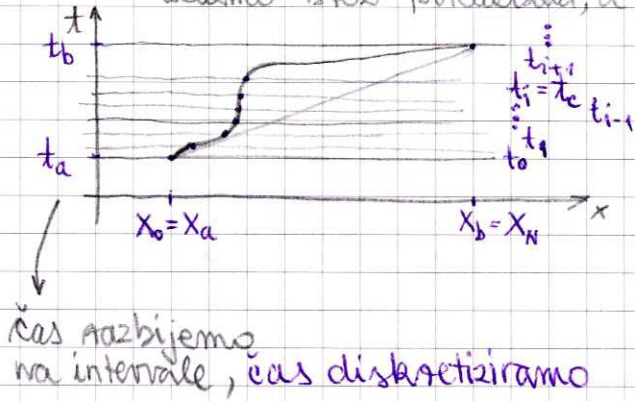 t
t_b
t_{i+1}
t_i = t_c
t_{i-1}
t_1
t_a
t_0
x
x_0 = x_a
x_b = x_N
čas razbijemo
na intervale, čas diskretiziramo